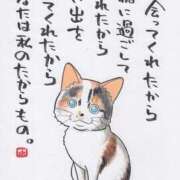 会ってくれたから
緒に過ごして
れたから
い出を
てくれたから
なたは私のたからもの。